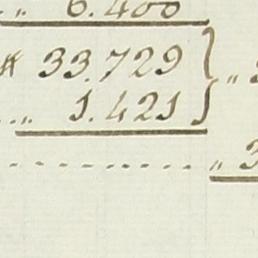 „ 6.400
# 33.729 } „ 3
„ 1.421
„ 3